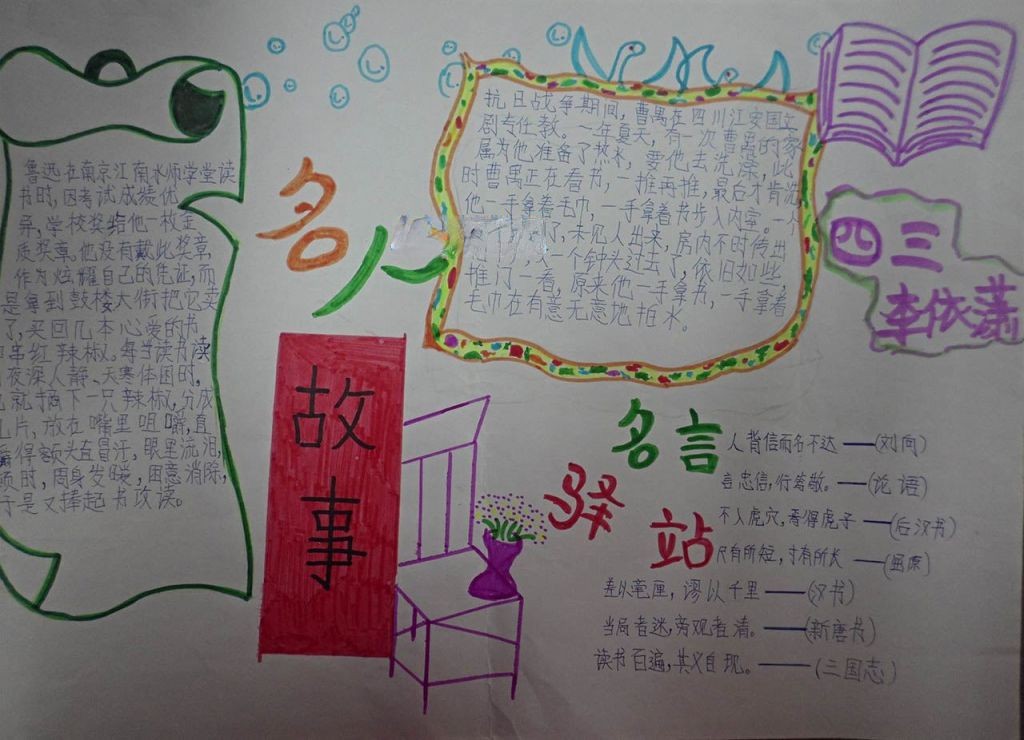 鲁迅在南京江南水师学堂读
书时,因考试成绩优
异,学校奖给他一枚金
质奖章。他没有戴此奖章,
作为炫耀自己的凭证,而
是拿到鼓楼大街把它卖
了,买回几本心爱的书
串红辣椒。每当读书读
夜深人静、天寒体困时,
就摘下一只辣椒,分成
片,放在嘴里咀嚼,直
得额头直冒汗,眼里流泪,
顿时,周身发暖,困意消除,
于是又捧起书攻读。
名人
故事
抗日战争期间,曹禺在四川江安国立
剧专任教。一年夏天,有一次曹禺的家
属为他准备了热水,要他去洗澡,此
时曹禺正在看书,一推再推,最后才肯洗
他一手拿着毛巾,一手拿着书步入内室。一个
了,未见人出来,房内不时传出
一个钟头过去了,依旧如些,
推门一看,原来他一手拿书,一手拿着
毛巾在有意无意地拍水。
四三
李依潇
名言
驿站
人背信而名不达——(刘向)
言忠信,行笃敬。——(论语)
不入虎穴,焉得虎子——(后汉书)
尺有所短,寸有所长——(屈原)
差以毫厘,谬以千里——(汉书)
当局者迷,旁观者清。——(新唐书)
读书百遍,其义自现。——(三国志)